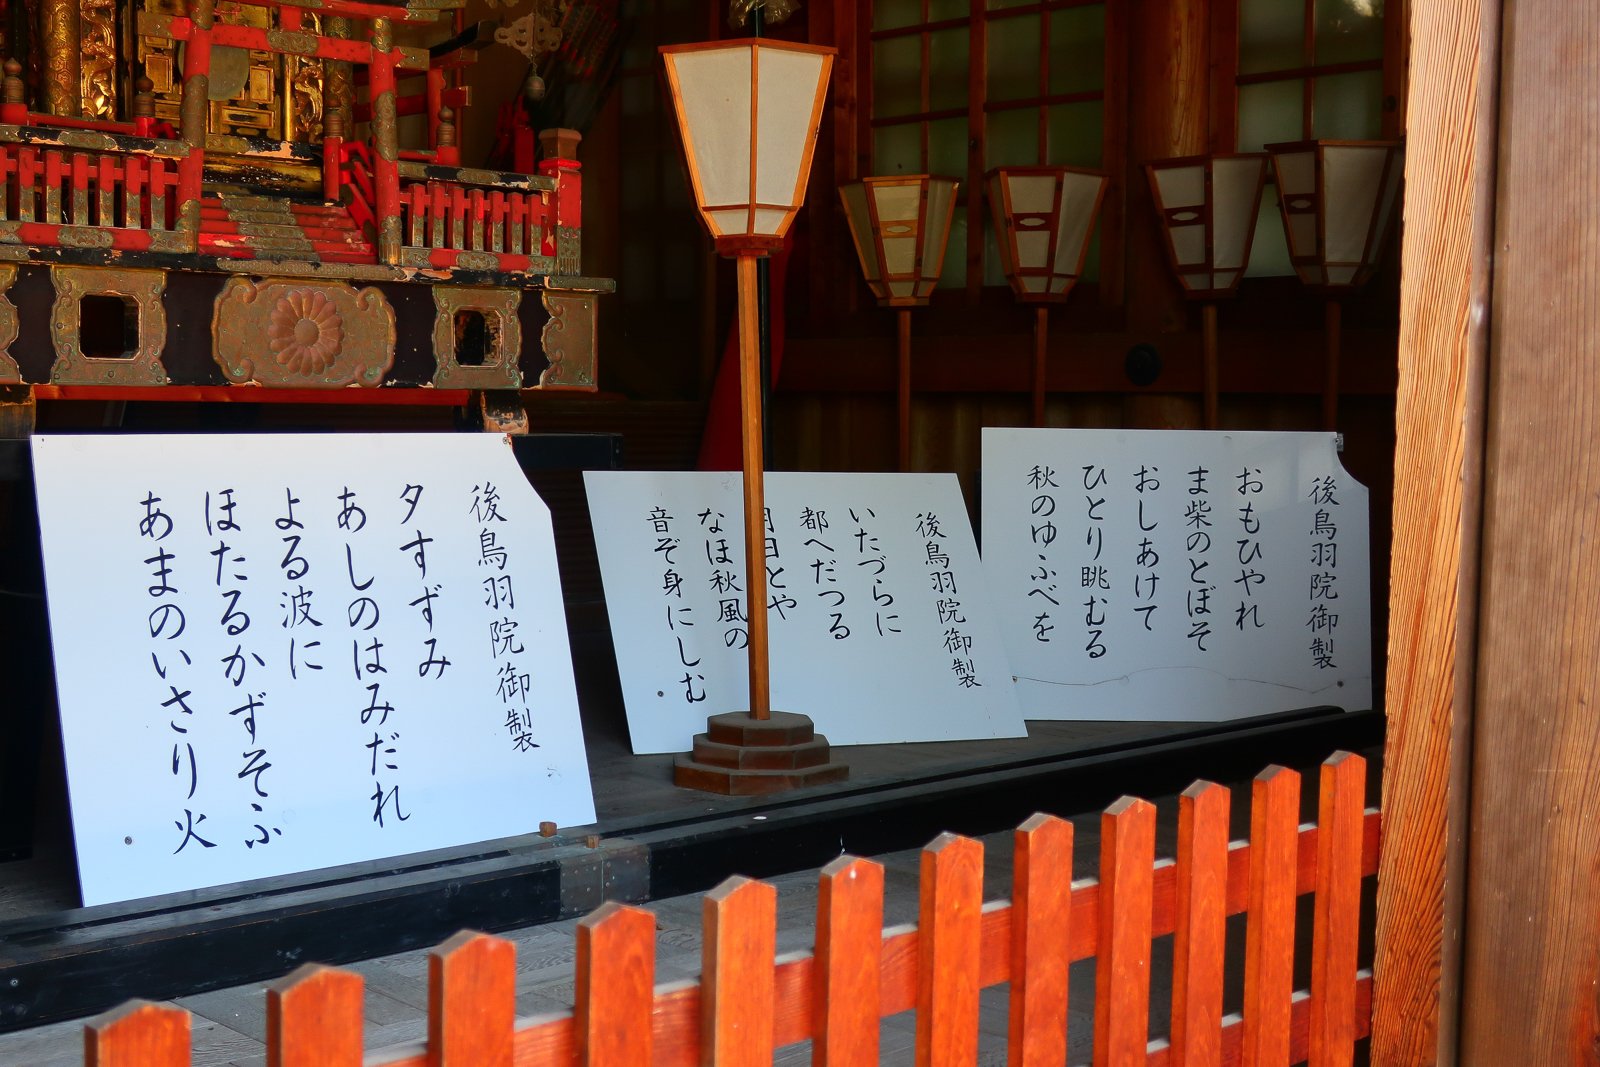 後鳥羽院御製
おもひやれ
ま柴のとぼそ
おしあけて
ひとり眺むる
秋のゆふべを
後鳥羽院御製
いたづらに
都へだつる
月日とや
なほ秋風の
音ぞ身にしむ
後鳥羽院御製
夕すずみ
あしのはみだれ
よる波に
ほたるかずそふ
あまのいさり火